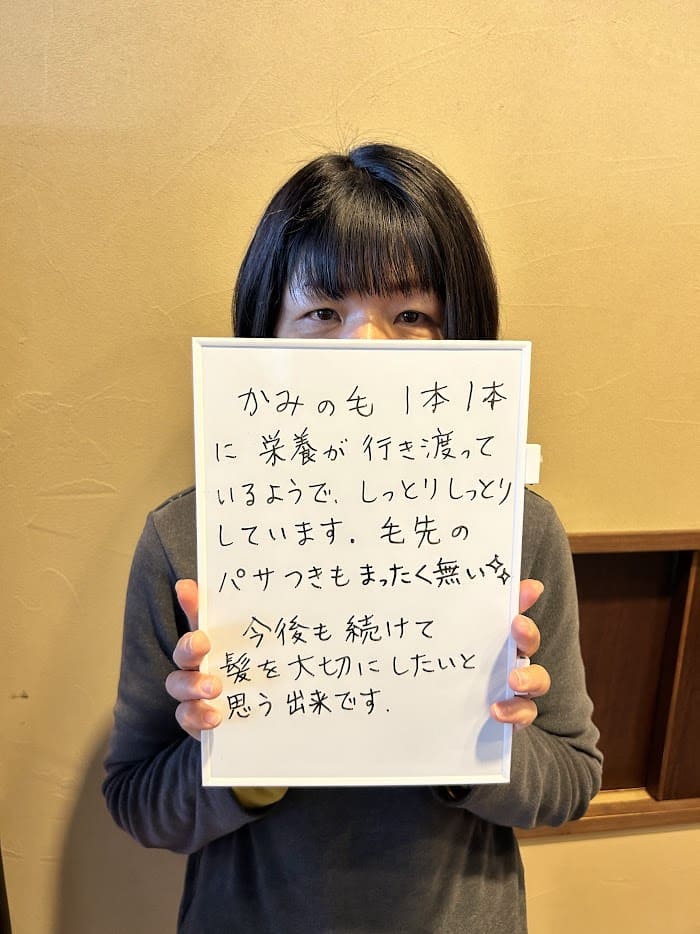 かみの毛 1本1本
に 栄養が 行き渡って
いるようで、しっとりしっとり
しています. 毛先の
パサつきもまったく無い✨
今後も続けて
髪を大切にしたいと
思う出来です.